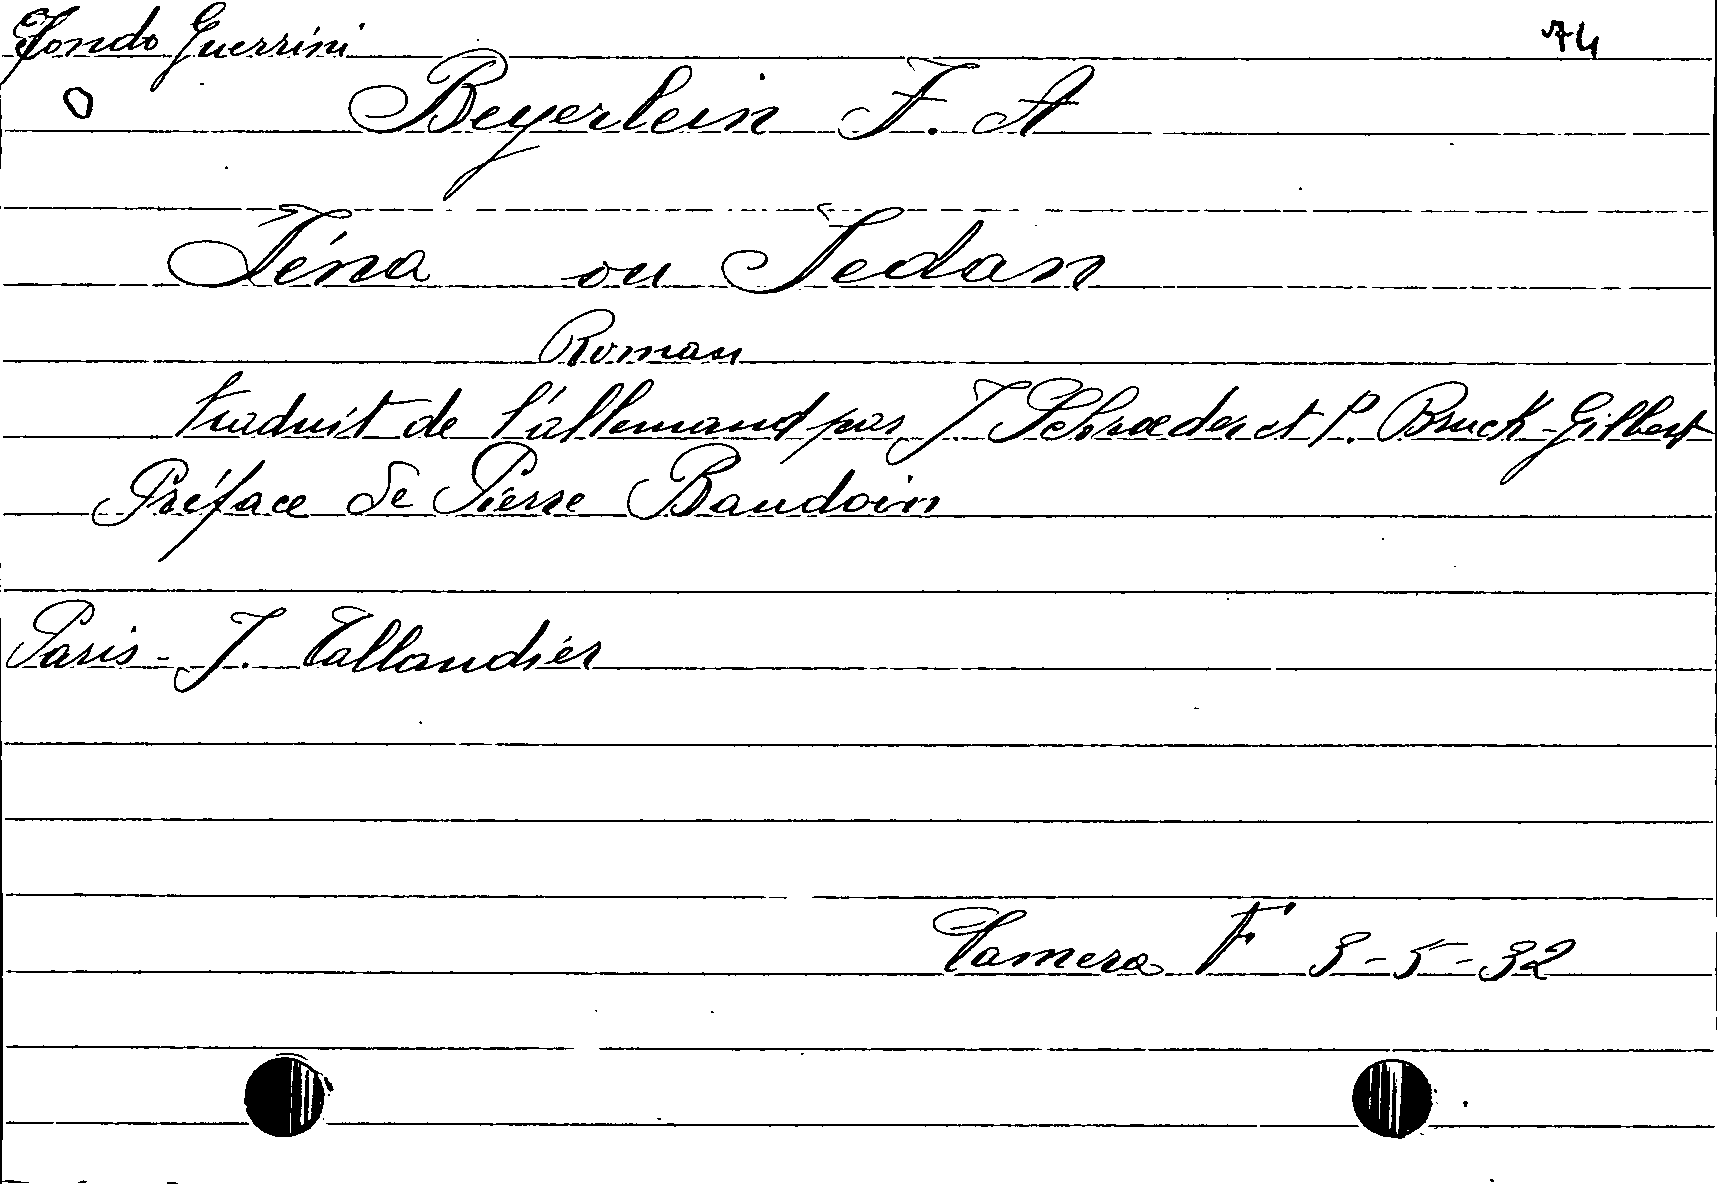 Fondo Guerrini 74
O Beyerlein F. A
Iéna ou Sedan
Roman
traduit de l'allemand par J Schroeder et P. Bruck-Gilbert
Préface de Pierre Baudoin
Paris - J. Tallandier
Camera F 3-5-32